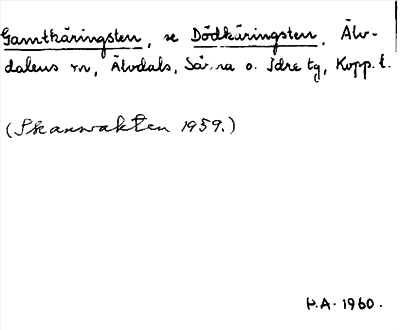 Gamtkäringsten, se Dödkäringsten, Älv-
dalens rn, Älvdals, Särna o. Idre tg, Kopp. l.
(Skansvakten 1959.)
H.A. 1960.